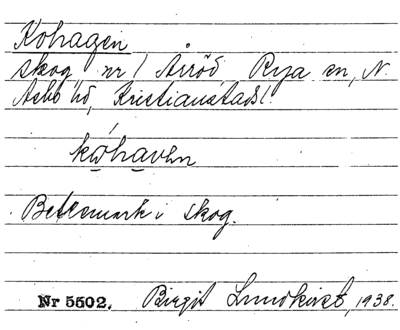 Kohagen
skog nr 1 Åsröd Rya sn, N.
Åsbo hd, Kristianstads l.
Betesmark i skog.
Nr 5502. Birgit Lundkvist, 1938.